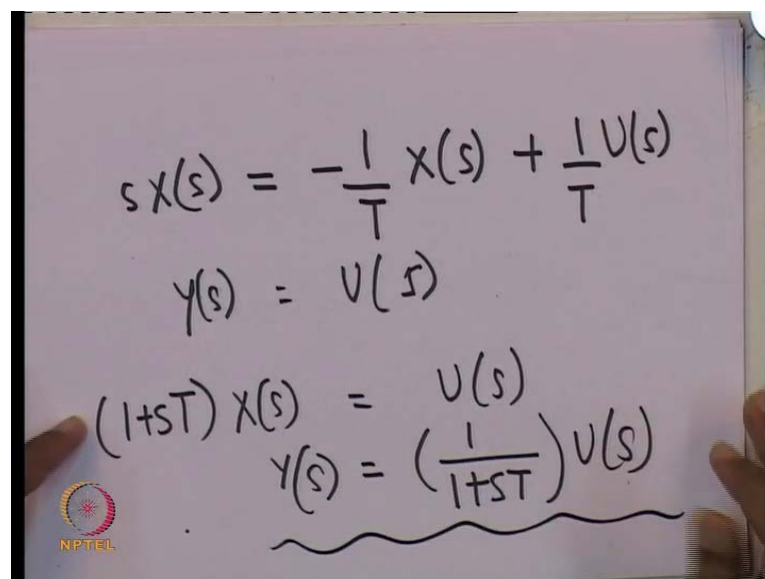 sX(s) = -1/T X(s) + 1/T U(s)
Y(s) = U(s)
(1+sT) X(s) = U(s)
Y(s) = (1/(1+sT)) U(s)
NPTEL